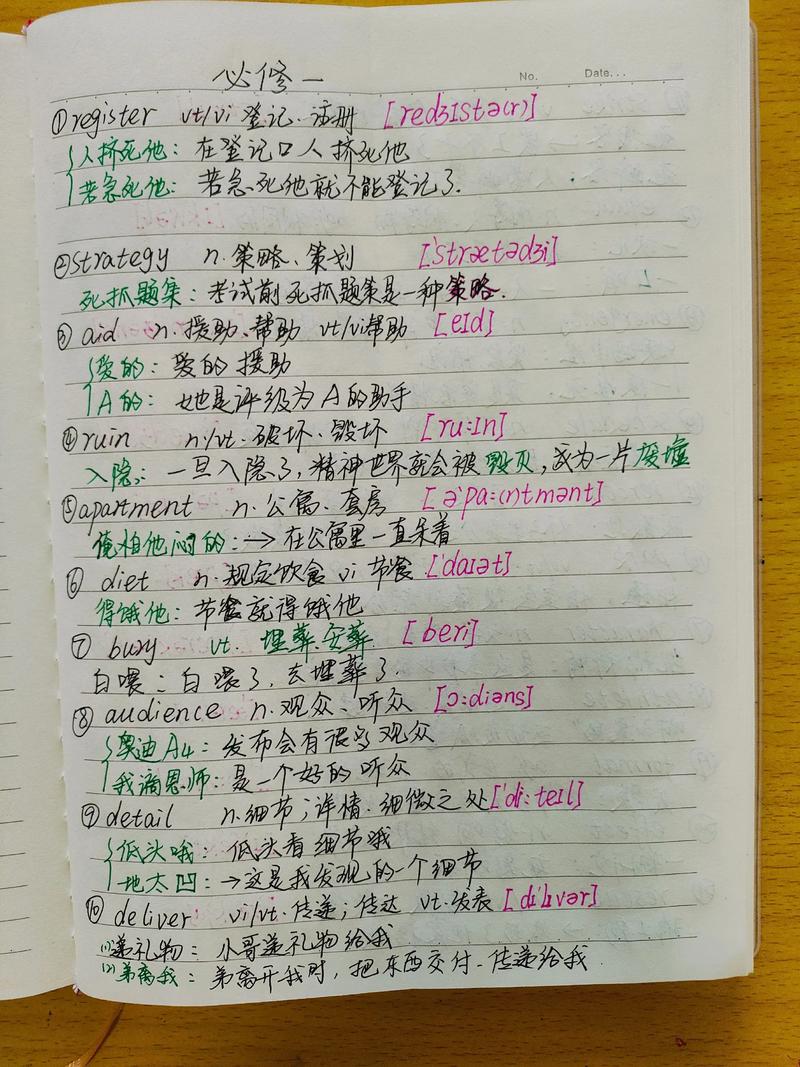 必修一
No. Date...
①register vt/vi 登记、注册 [redʒɪstə(r)]
人挤死他：在登记口人挤死他
若急死他：若急死他就不能登记了.
②strategy n.策略、策划 ['strætədʒi]
死抓题集：考试前死抓题集是一种策略.
③ aid n.援助、帮助 vt/vi帮助 [eɪd]
爱的：爱的援助
A的：她是评级为A的助手
④ruin n/vt.破坏、毁坏 [ru:ɪn]
入隐：一旦入隐了,精神世界就会被毁灭,成为一片废墟
⑤apartment n.公寓、套房 [ə'pa:(r)tmənt]
俺怕他闷的：→在公寓里一直呆着
⑥ diet n.规定饮食 vi 节食 ['daɪət]
得饿他：节食就得饿他
⑦ bury vt. 埋葬、安葬 [beri]
白喂：白喂了,去埋葬了.
⑧audience n.观众、听众 [ɔ:diəns]
奥迪A4：发布会有很多观众
我谪恩师：是一个好的听众
⑨detail n.细节;详情.细微之处['di:teɪl]
低头哦：低头看细节哦
地太凹：→这是我发现的一个细节
⑩ deliver vi/vt.传递;传达 vt.发表 [dɪ'lɪvər]
(1)递礼物：小哥递礼物给我
(2)弟离我：弟离开我时,把东西交付、传递给我.